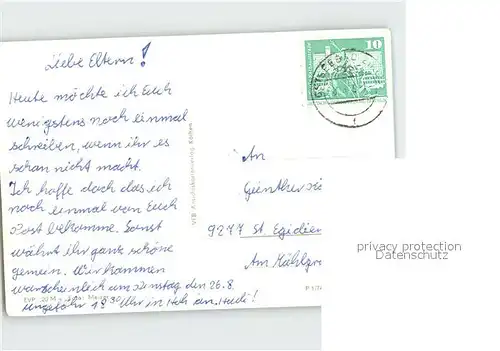 Liebe Eltern!
Heute möchte ich Euch
wenigstens noch einmal
schreiben, wenn ihr es
schon nicht macht.
Ich hoffe doch das ich
noch einmal von Euch
Post bekomme. Sonst
währt ihr ganz schöne
gemein. Wir kommen
warscheinlich am Dinstag den 26.8.
ungefähr 18 30 Uhr in Hoh an. Heidi!
VEB Ansichtskartenverlag Köthen
10
An
Günther
9277 St. Egidien
Am
privacy protection
Datenschutz